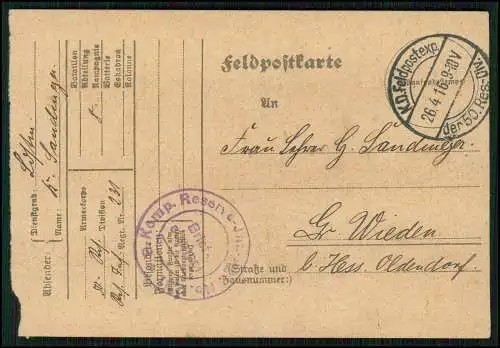 Feldpostkarte
An
Frau Lehrer H. Sandinger
Gr. Wieden
b. Hess. Oldendorf.
(Straße und
Hausnummer:)
K.D. Feldpostexp.
26.4.16.9-10V
der 50. Res.-Div.
Komp. Reserve-Inf.
Absender:
Dienstgrad: Lttn.
Name: K. Sandinger
Bataillon
Abteilung
Kompagnie
Batterie
Eskadron
Kolonne
Armeekorps
Division
Regt. Nr. 231
Res. Inf.
Besondere
Formationen: